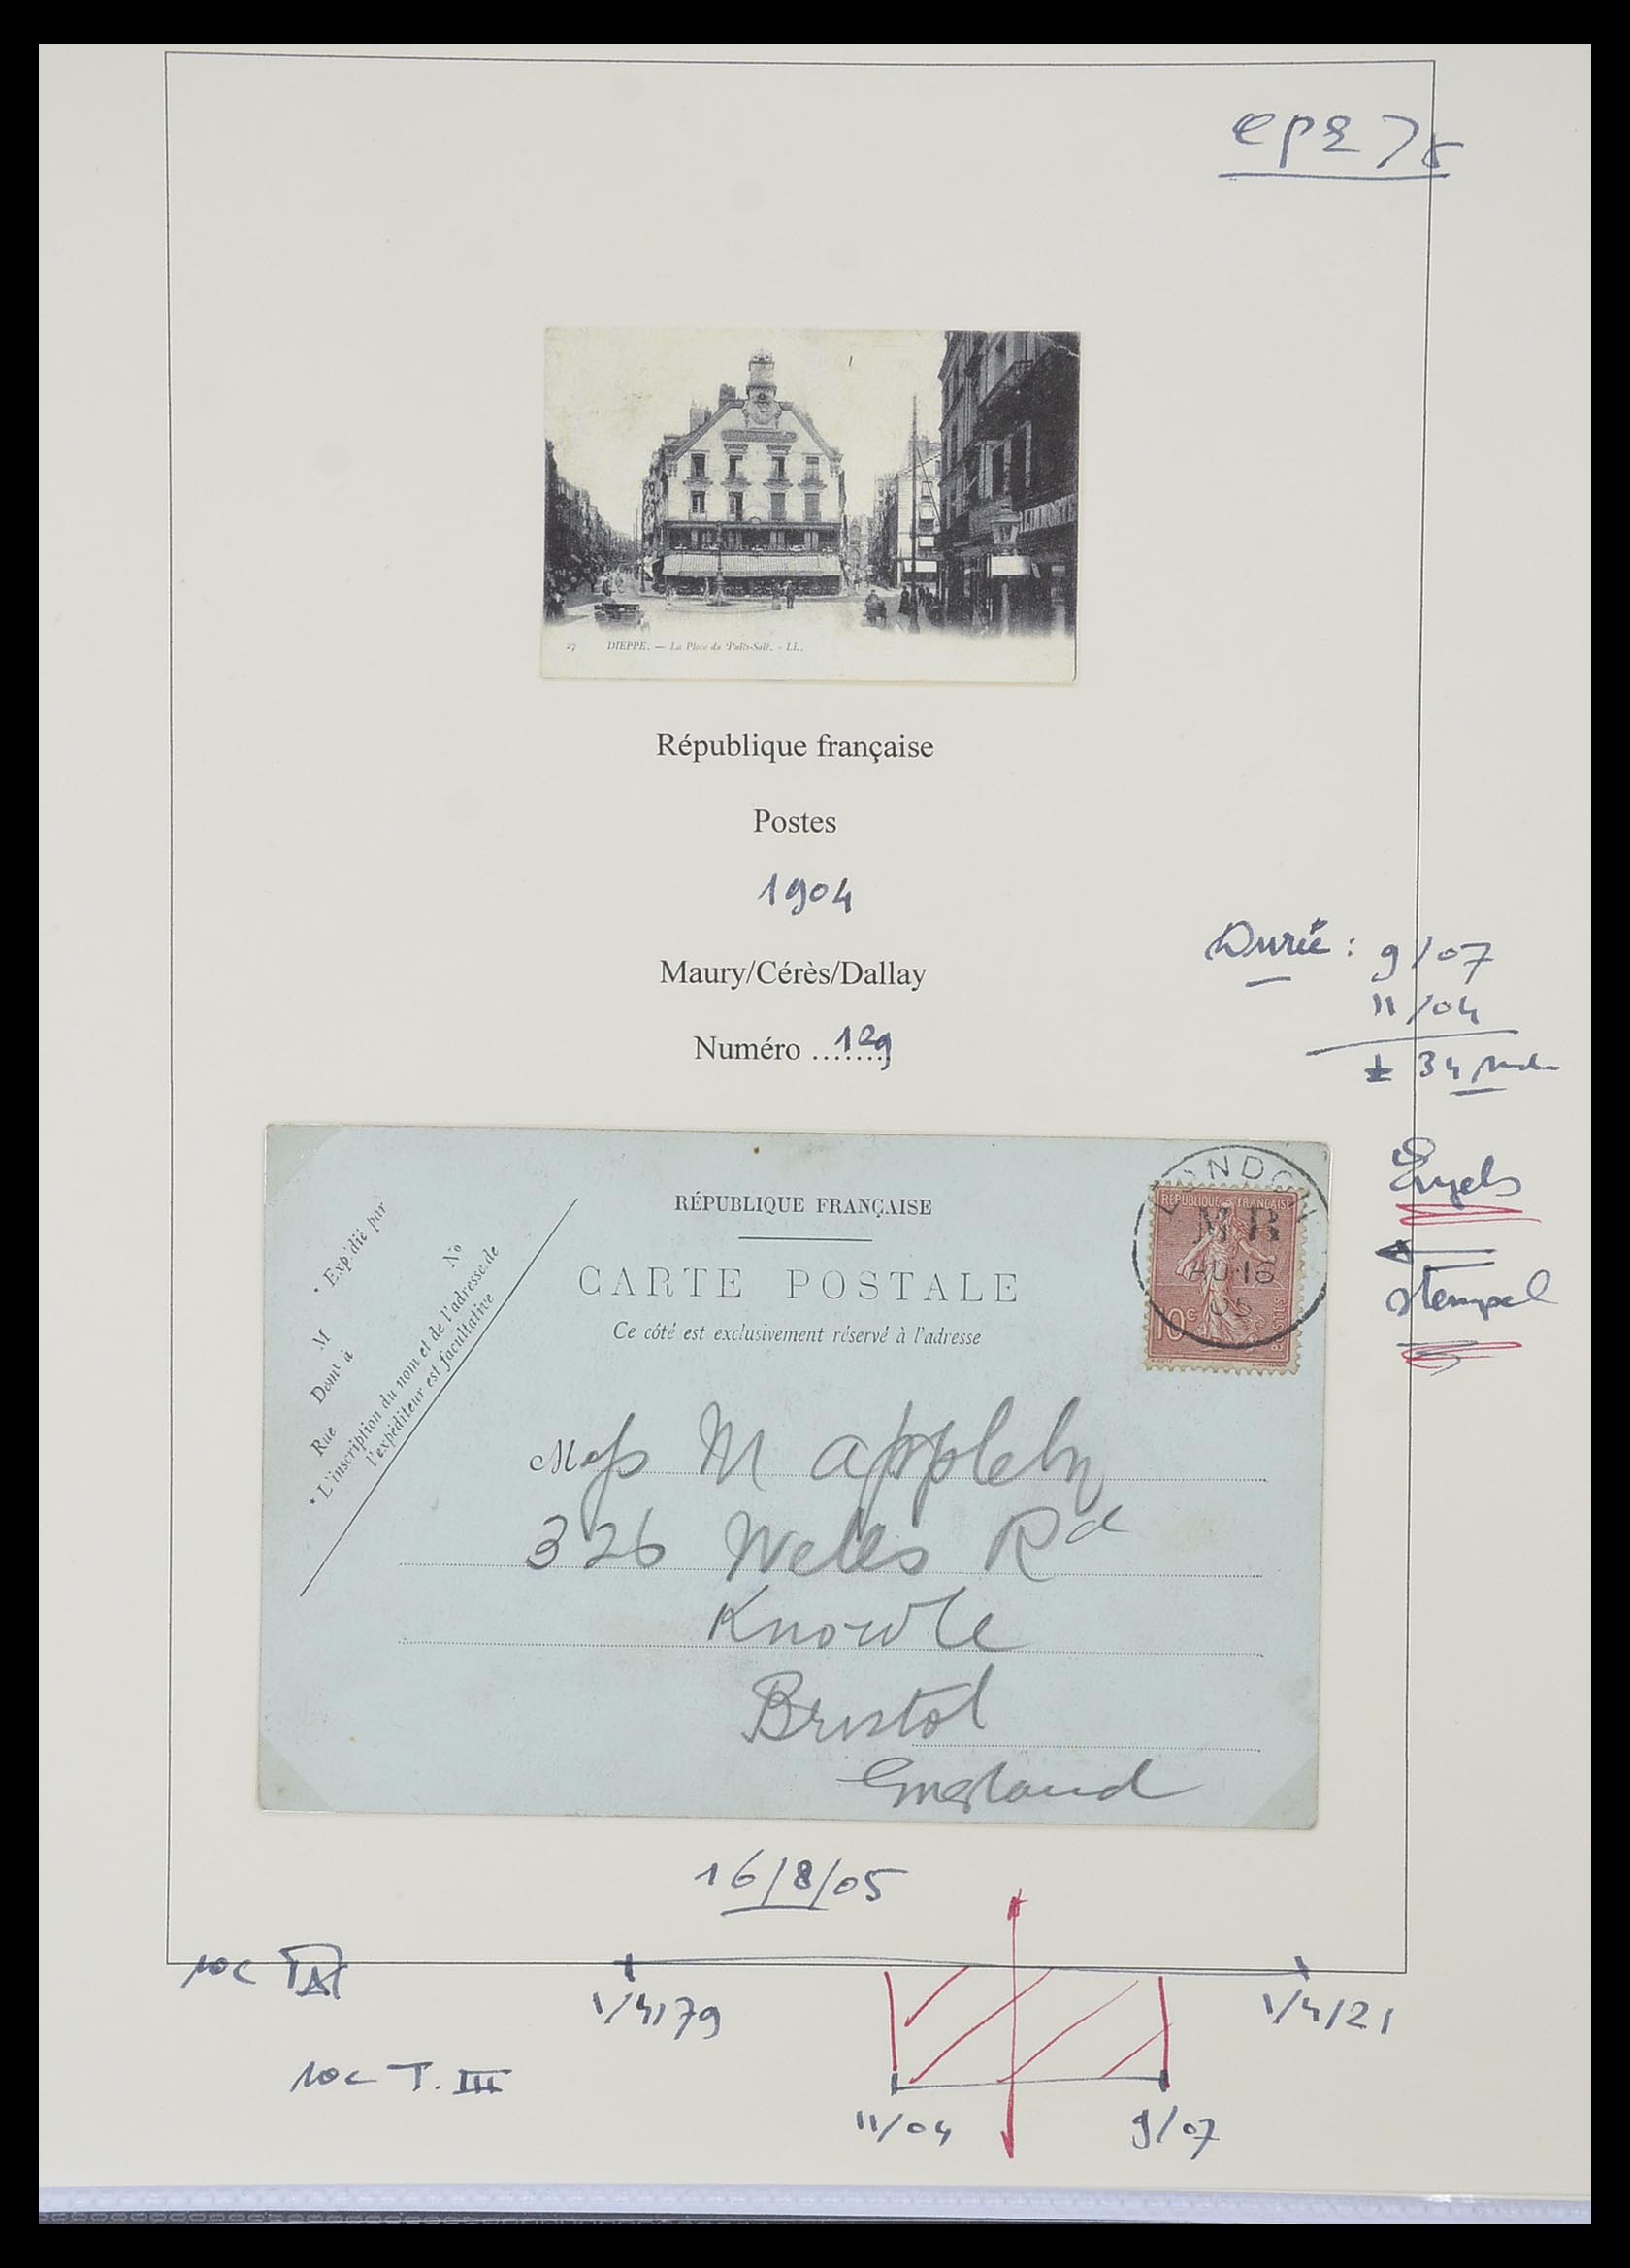 27 DIEPPE. — La Place du Puits-Salé. - LL.
République française
Postes
1904
Maury/Cérès/Dallay
Numéro ........129
Durée : 9/07
11/04
± 34
Engels
stempel
RÉPUBLIQUE FRANÇAISE
CARTE POSTALE
Ce côté est exclusivement réservé à l'adresse
* Expédié par
M
Demt à
Rue No
* L'inscription du nom et de l'adresse de
l'expéditeur est facultative
LONDON
M R
AU 16
05
REPUBLIQUE FRANÇAISE
10c
POSTES
Miss M Appleby
326 Wells Rd
Knowle
Bristol
England
16/8/05
10c
1/4/79
1/4/21
10c T. III
11/04
9/07